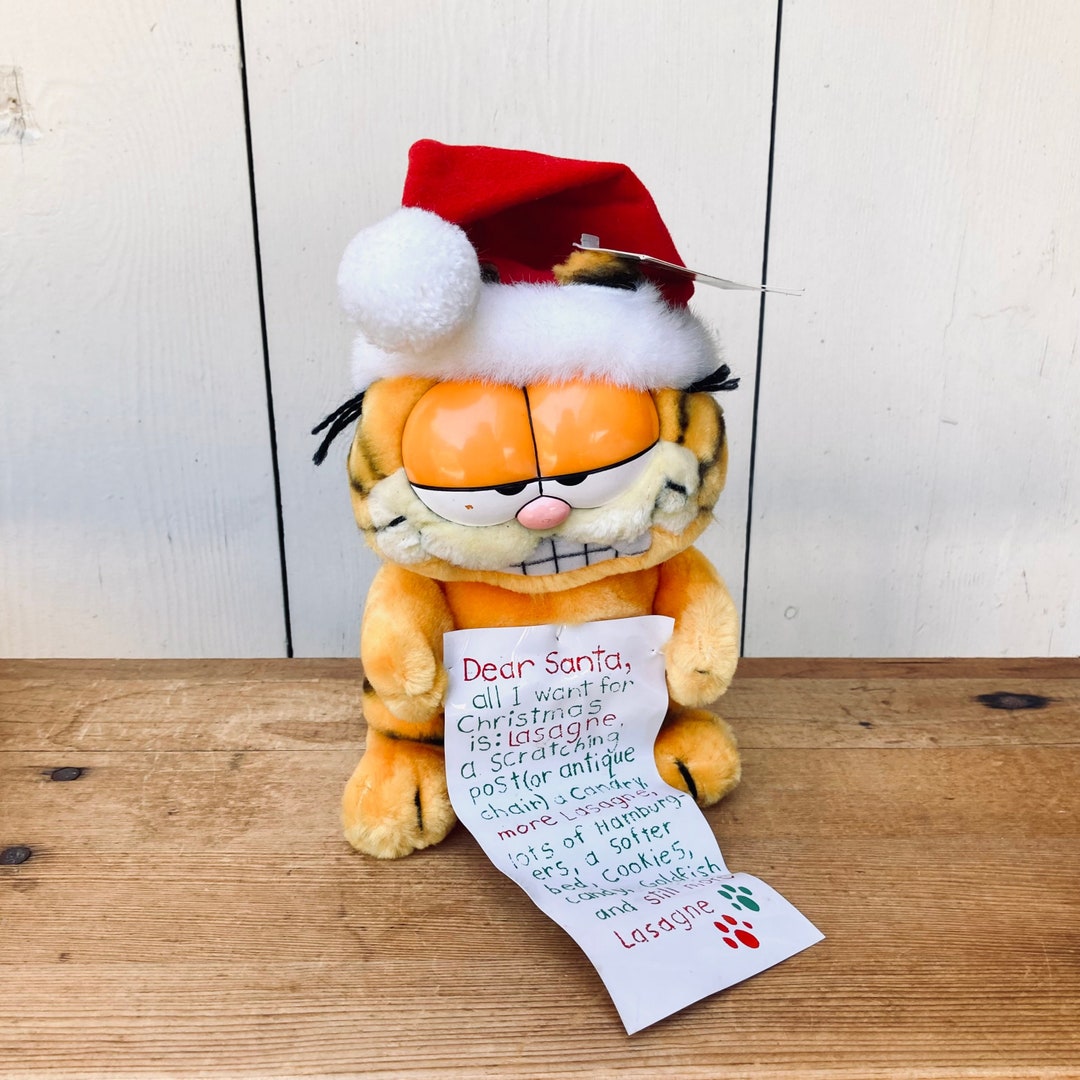 Dear Santa,
all I want for
Christmas
is: Lasagne,
a Scratching
post (or antique
chair) a Canary,
more Lasagne,
lots of Hamburg-
ers, a softer
bed, Cookies,
candy, Goldfish
and still more
Lasagne